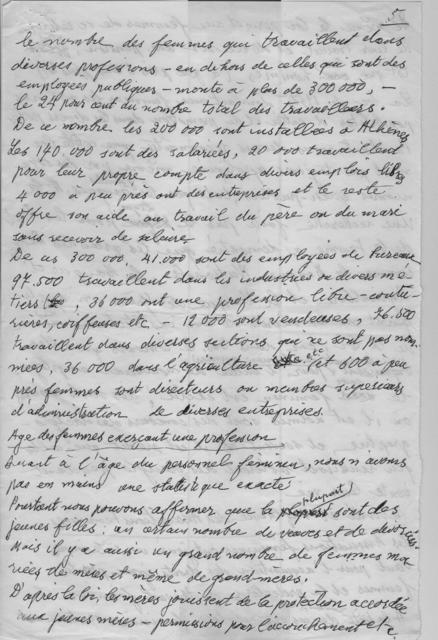 5
le nombre des femmes qui travaillent dans
diverses professions – en dehors de celles qui sont des
employées publiques – monte à plus de 300 000, –
le 24 pour cent du nombre total des travailleurs.
De ce nombre les 200 000 sont installées à Athènes
Les 140.000 sont des salariées, 20 000 travaillent
pour leur propre compte dans divers emplois libres
4 000 à peu près ont des entreprises et le reste
offre son aide au travail du père ou du mari
sans recevoir de salaire
De ces 300 000, 41.000 sont des employées de bureau
97.500 travaillent dans les industries de divers mé-
tiers, 36 000 ont une profession libre – coutu-
rières, coiffeuses etc – 12 000 sont vendeuses, 76.500
travaillent dans diverses sections, que ne sont pas nom-
mées, 36 000 dans l'agriculture etc et 600 à peu
près femmes sont directeurs ou membres superieurs
d'administration de diverses entreprises.
Age des femmes exerçant une profession
Quant à l'âge du personnel féminin, nous n'avons
pas en mains une statistique exacte
Pourtant nous pouvons affirmer que la plupart sont des
jeunes filles: un certain nombre de veuves et de divorcées.
Mais il y a aussi un grand nombre de femmes ma-
riées de mères et même de grand-mères.
D'après la loi, les mères jouissent de la protection accordée
aux jeunes mères – permissions pour l'accouchement etc